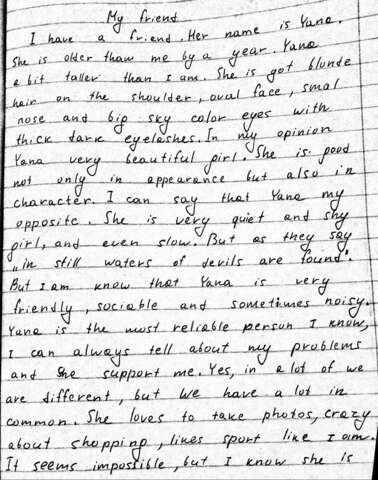 My friend
I have a friend. Her name is Yana.
She is older thaw me by a year. Yana
a bit taller than I am. She is got blunde
hair on the shoulder, oval face, smal
nose and big sky color eyes with
thick dark eyelashes. In my opinion
Yana very beautiful girl. She is good
not only in appearance but also in
character. I can say that Yana my
opposite. She is very quiet and shy
girl, and even slow. But as they say
„in still waters of devils are found".
But I am know that Yana is very
friendly, sociable and sometimes noisy.
Yana is the most reliable person I know,
I can always tell about my problems
and she support me. Yes, in a lot of we
are different, but we have a lot in
common. She loves to take photos, crazy
about shopping, likes sport like I am.
It seems impossible, but I know she is